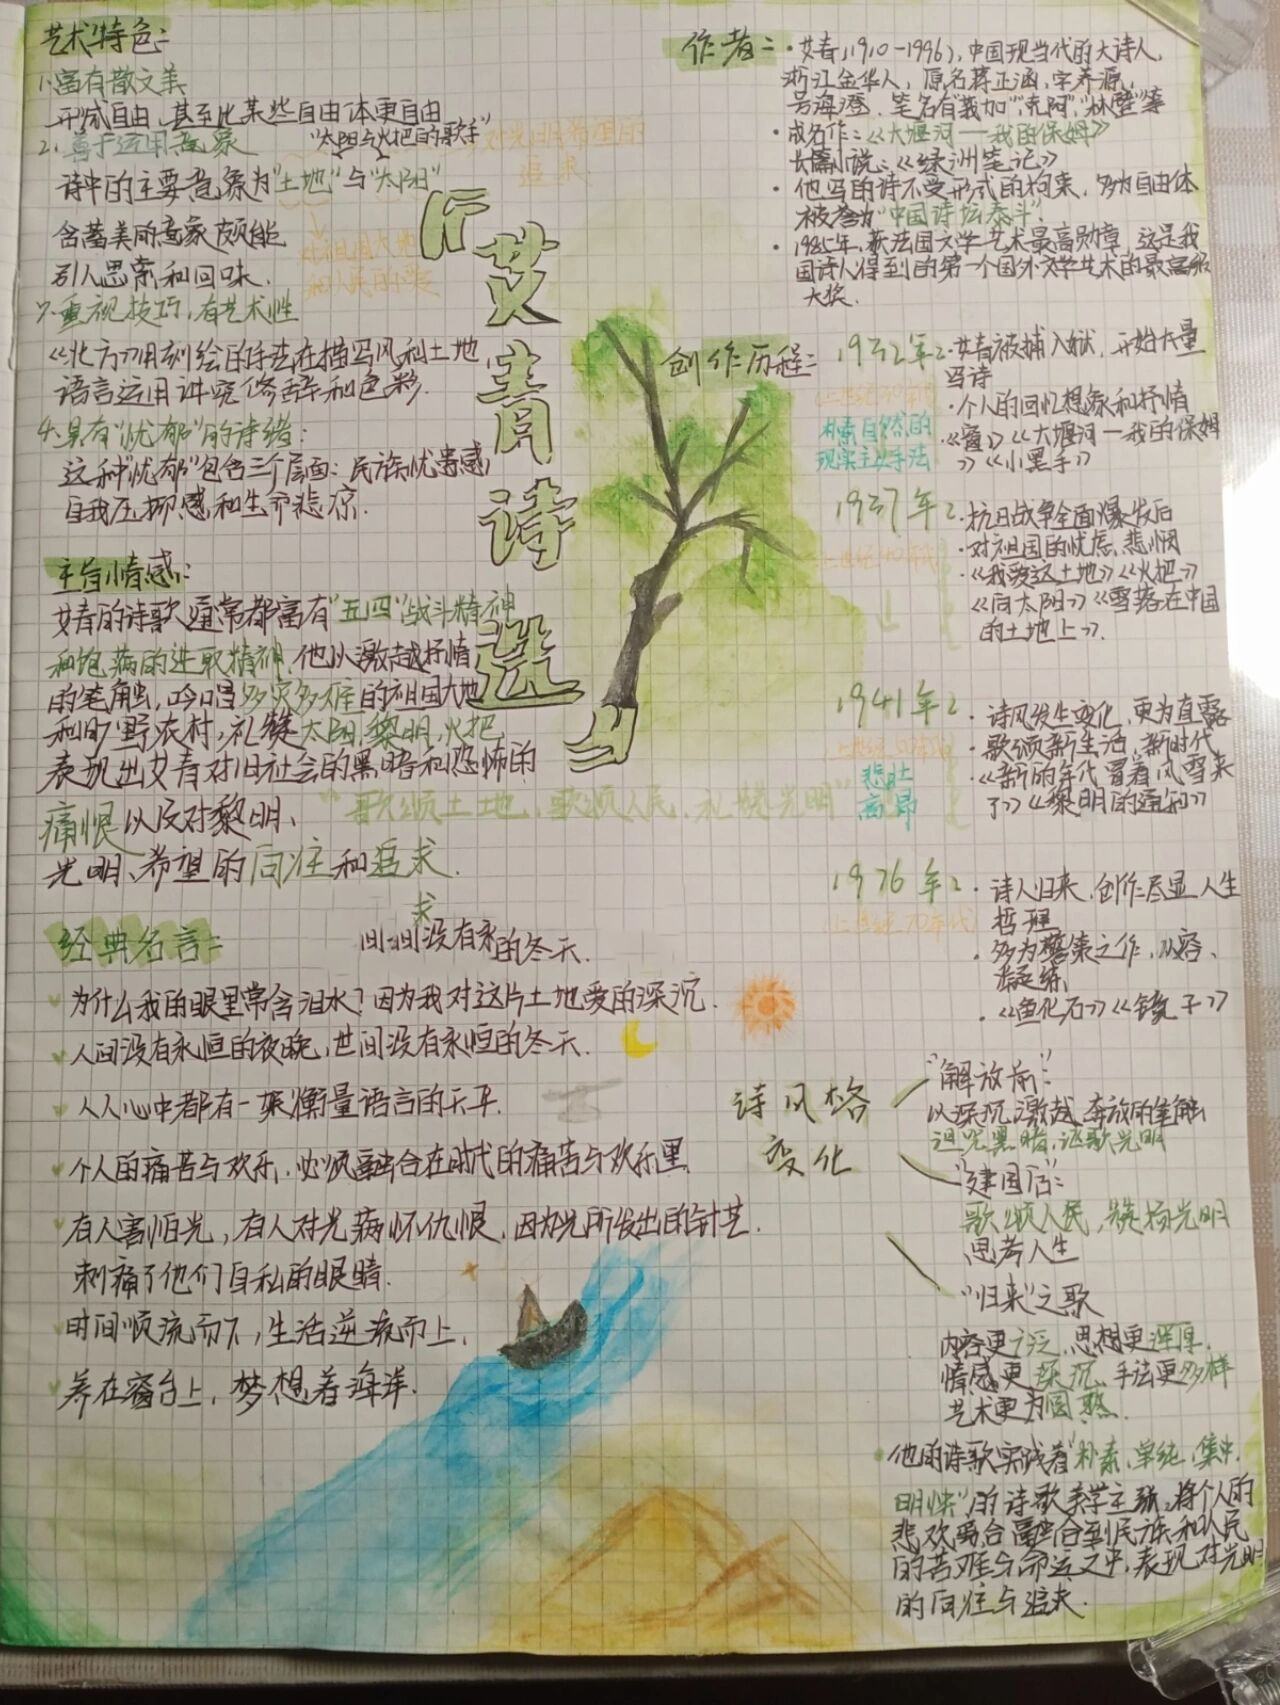 艺术特色:
1.富有散文美
形成自由,甚至比某些自由体更自由
2.善于运用意象
"太阳与火把的歌手"
对光明希望的
追求
诗中的主要意象为"土地"与"太阳"
含蓄美的意象颇能
引人思索和回味.
对祖国大地
和人民的
3.重视技巧,有艺术性
《北方》用刻绘的手法在描写风和土地
语言运用讲究修辞和色彩.
4.具有"忧郁"的诗绪:
这种"忧郁"包含三个层面:民族忧患感,
自我压抑感和生命悲凉.
主旨情感:
艾青的诗歌通常都富有"五四"战斗精神
和饱满的进取精神,他以激越抒情
的笔触,吟唱多灾多难的祖国大地
和旷野农村,礼赞太阳,黎明,火把
表现出艾青对旧社会的黑暗和恐怖的
痛恨以及对黎明、
光明、希望的向往和追求.
"歌颂土地,歌颂人民,礼赞光明"
《艾青诗选》
作者:·艾青(1910-1996),中国现当代的大诗人,
浙江金华人,原名蒋正涵,字养源,
号海澄,笔名有"莪加","克阿","林壁"等
·成名作:《大堰河—我的保姆》
长篇小说:《绿洲笔记》
·他写的诗不受形式的拘束,多为自由体
被誉为"中国诗坛泰斗".
·1985年,获法国文学艺术最高勋章,这是我
国诗人得到的第一个国外文学艺术的最高级
大奖.
创作历程:
1932年:·艾青被捕入狱,开始大量
写诗
(上世纪30年代
朴素自然的
现实主义手法
·个人的回忆想象和抒情
·《窗》《大堰河—我的保姆
》《小黑手》
1937年:·抗日战争全面爆发后
·对祖国的忧虑,悲悯
·《我爱这土地》《火把》
《向太阳》《雪落在中国
的土地上》.
1941年:·诗风发生变化,更为直露
·歌颂新生活,新时代
悲壮
高昂
·《新的年代冒着风雪来
了》《黎明的通知》
1976年:·诗人归来,创作尽显人生
哲理
(上世纪70年代)
·多为警策之作,从容、
凝练
·《鱼化石》《镜子》
经典名言:
求
间间没有永的冬天.
为什么我的眼里常含泪水?因为我对这片土地爱的深沉.
人间没有永恒的夜晚,世间没有永恒的冬天.
人人心中都有一架衡量语言的天平.
个人的痛苦与欢乐,必须融合在时代的痛苦与欢乐里.
有人害怕光,有人对光满怀仇恨,因为光所发出的针芒.
刺痛了他们自私的眼睛.
时间顺流而下,生活逆流而上.
养在窗台上,梦想着海洋.
诗风格
变化
"解放前":
以深沉,激越,奔放的笔触
诅咒黑暗,讴歌光明
"建国后":
歌颂人民,赞扬光明
思考人生
"归来"之歌
内容更广泛,思想更浑厚.
情感更深沉、手法更多样
艺术更为圆熟.
·他的诗歌实践着"朴素,单纯,集中,
明快"的诗歌美学主张,将个人的
悲欢离合融合到民族和人民
的苦难与命运之中,表现对光明
的向往与追求.